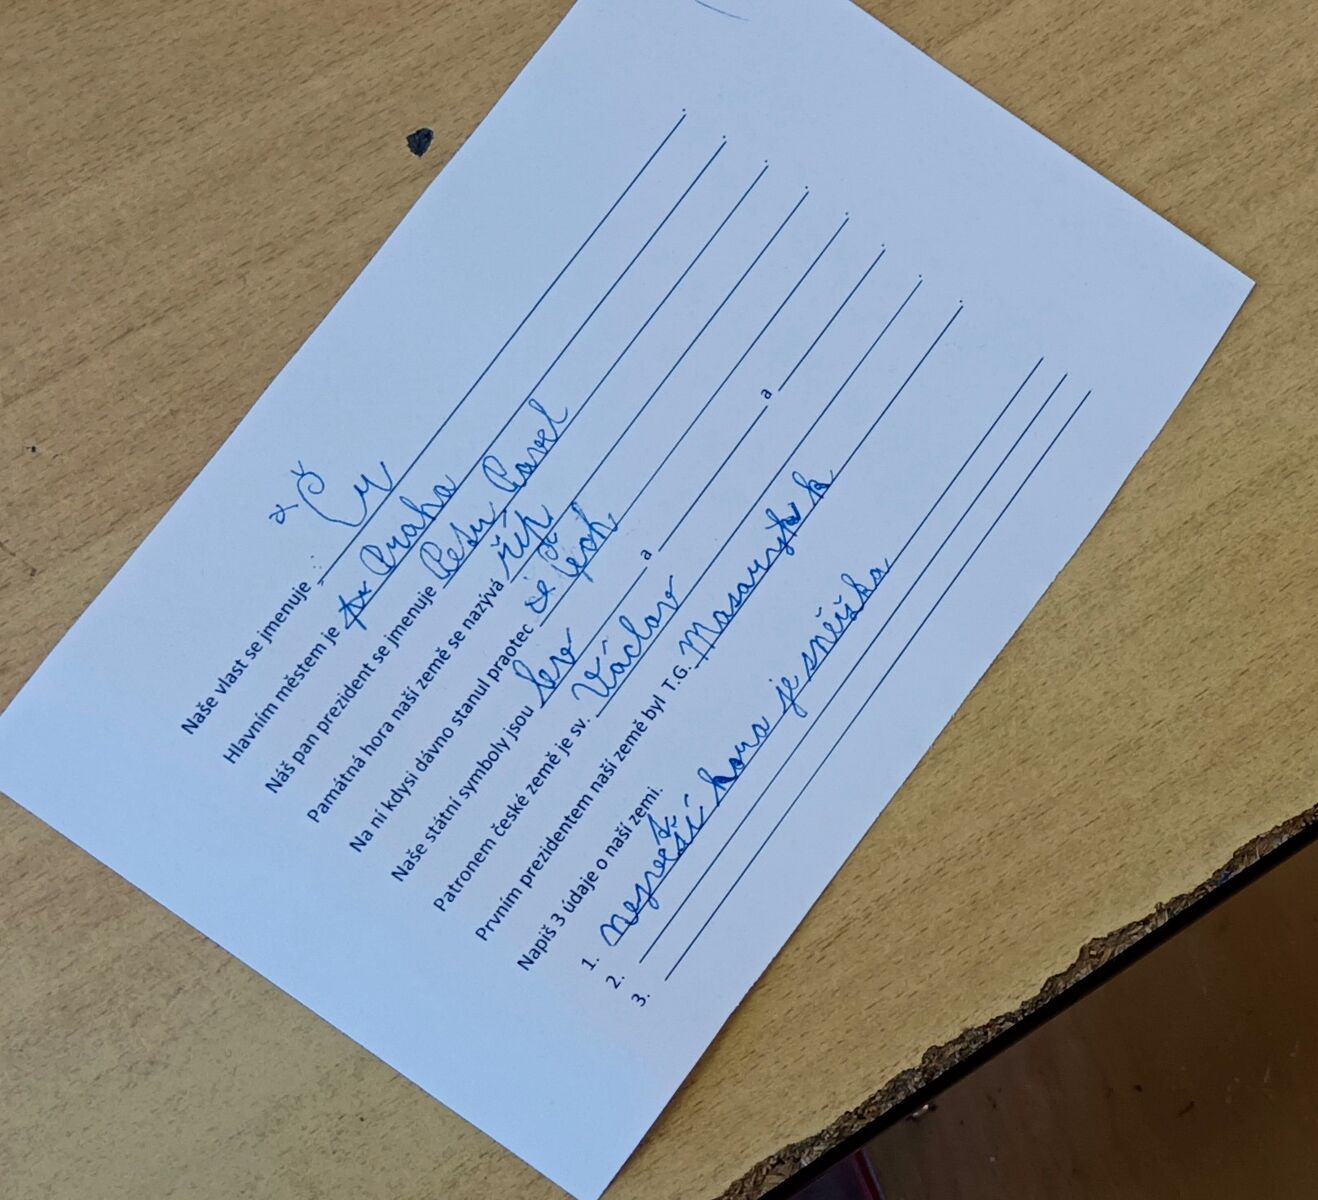 Naše vlast se jmenuje Čr.
Hlavním městem je Praha.
Náš pan prezident se jmenuje Petr Pavel.
Památná hora naší země se nazývá říp.
Na ni kdysi dávno stanul praotec čech.
Naše státní symboly jsou lev a a .
Patronem české země je sv. Václav.
Prvním prezidentem naší země byl T.G. Masaryk.
Napiš 3 údaje o naší zemi.
1. hora je sněžka
2.
3.